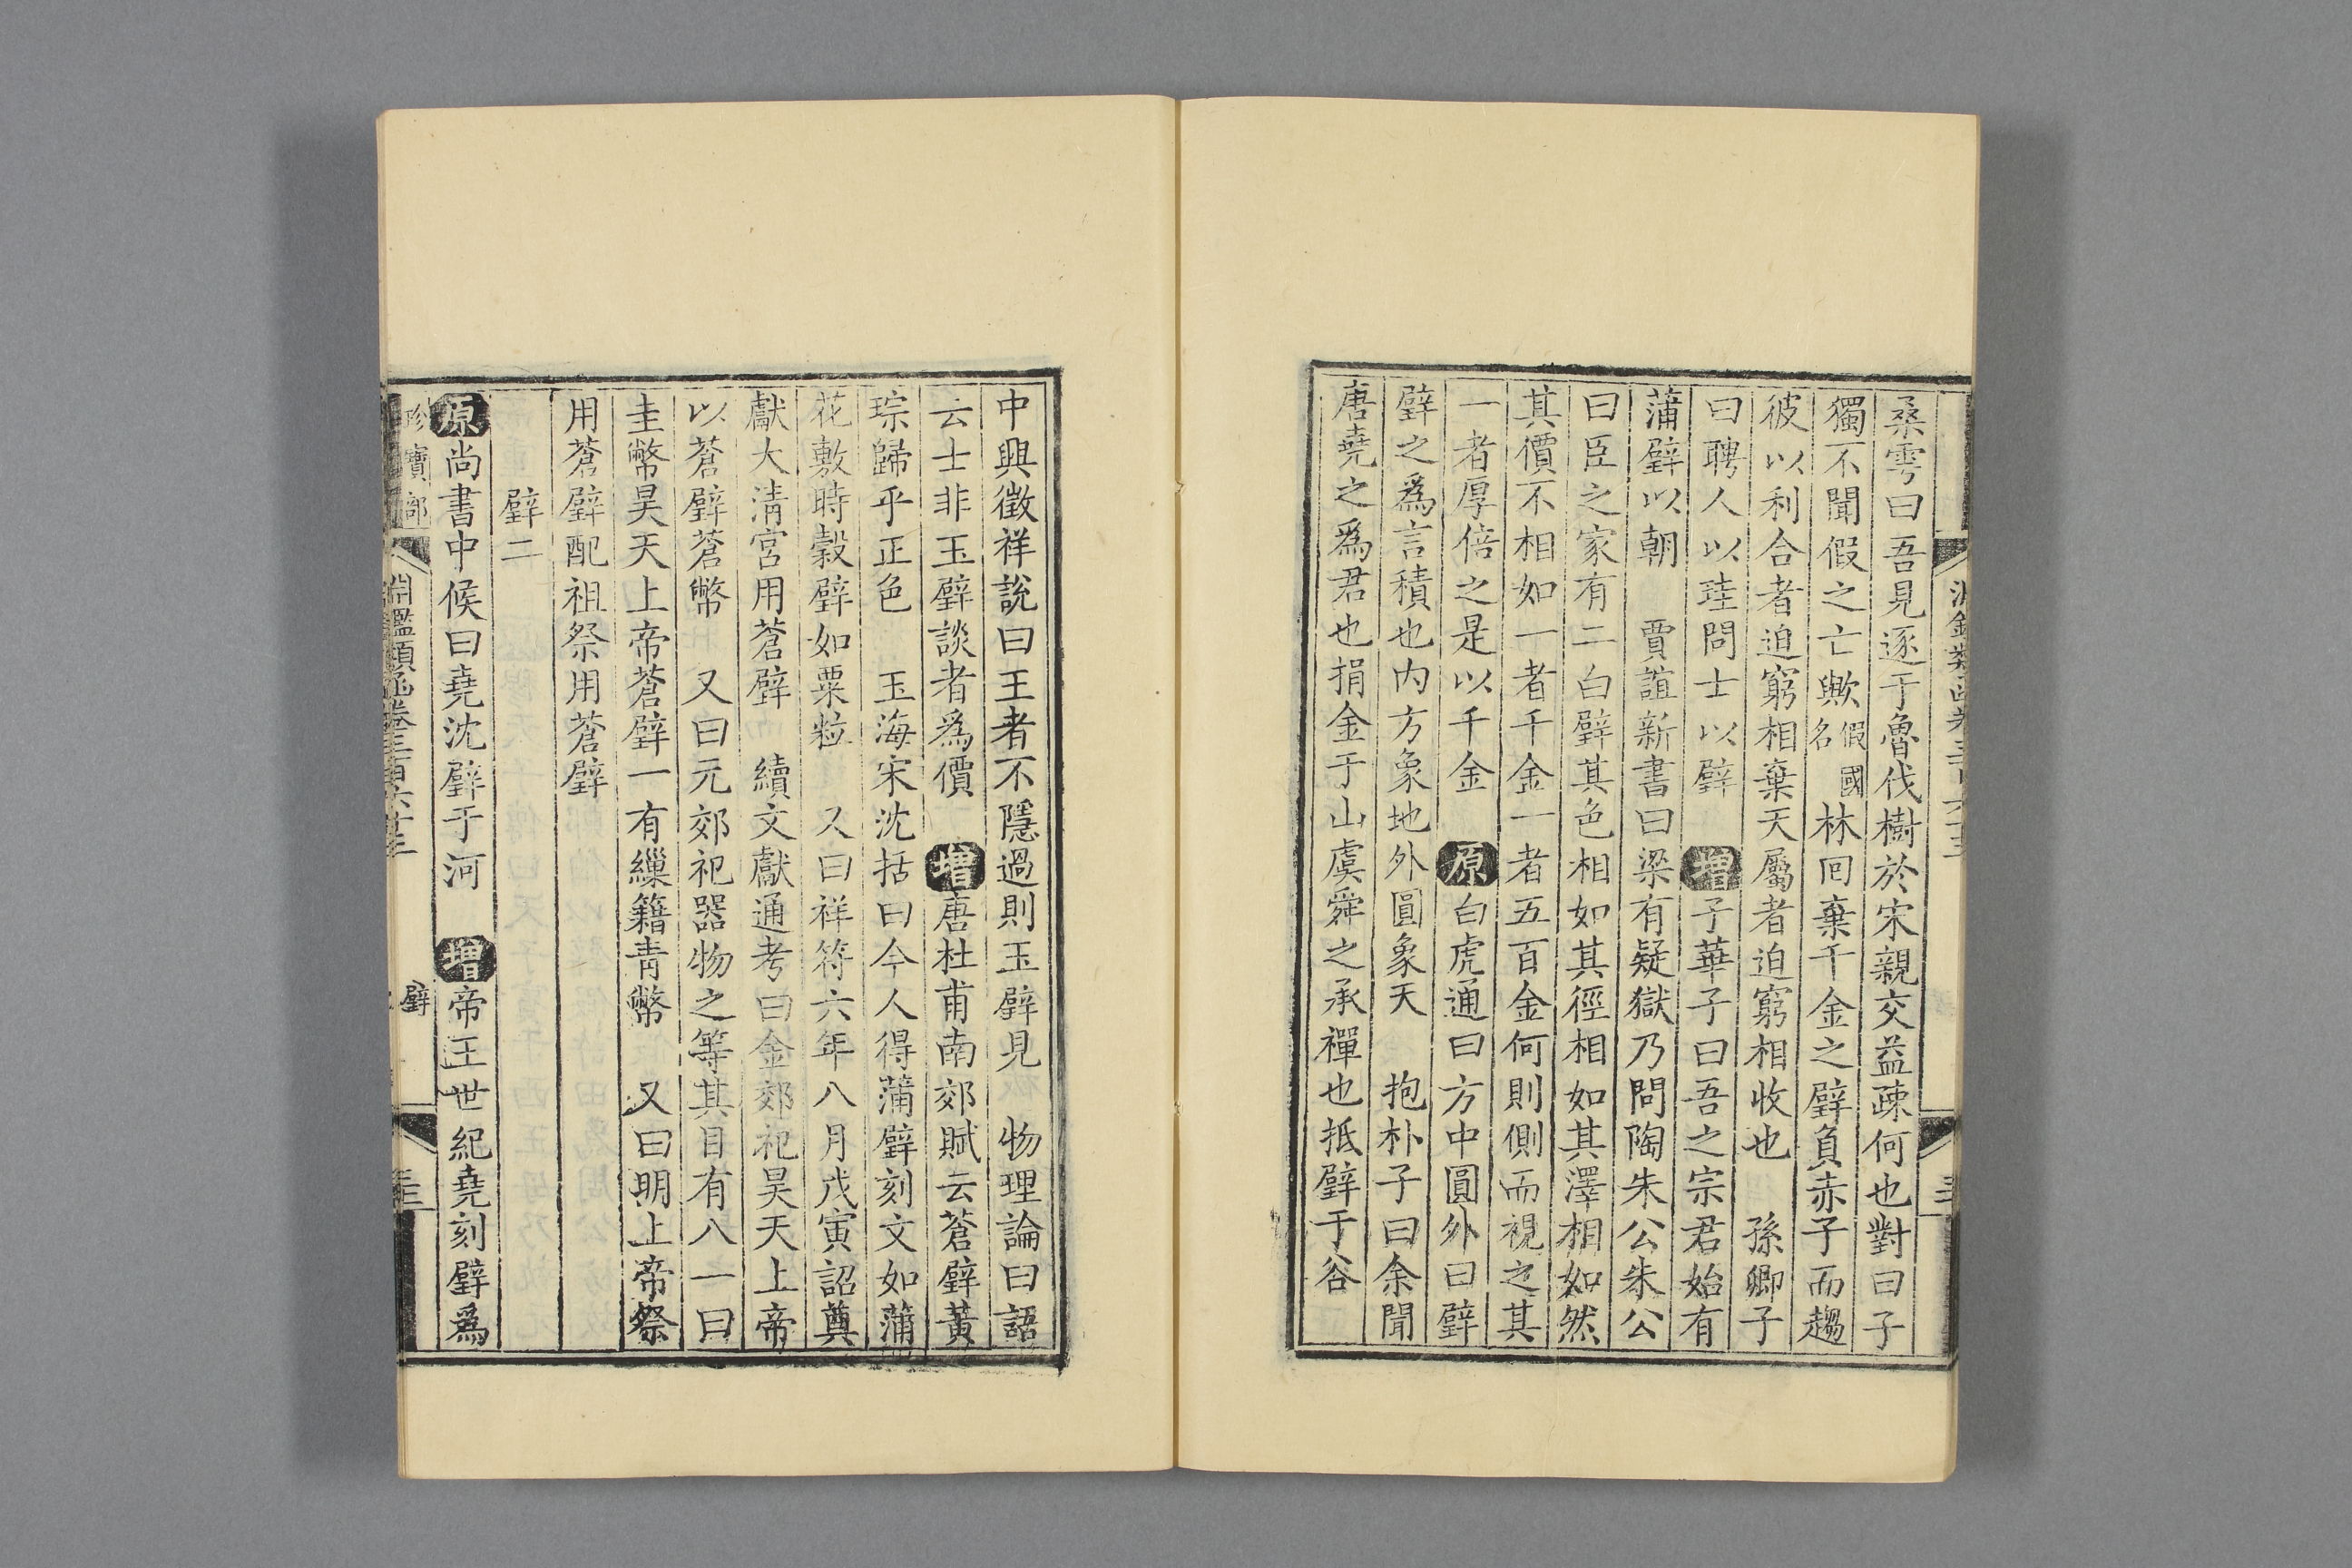 桑雩曰吾見逐于魯伐樹於宋親交益疎何也對曰子
獨不聞假之亡歟假國名林囘棄千金之璧負赤子而趨
彼以利合者迫窮相棄天屬者迫窮相收也　孫卿子
曰聘人以珪問士以璧　增子華子曰吾之宗君始有
蒲璧以朝　賈誼新書曰梁有疑獄乃問陶朱公朱公
曰臣之家有二白璧其色相如其徑相如其澤相如然
其價不相如一者千金一者五百金何則側而視之其
一者厚倍之是以千金　原白虎通曰方中圓外曰璧
璧之為言積也内方象地外圓象天　抱朴子曰余聞
唐堯之爲君也捐金于山虞舜之承禪也抵璧于谷
中興徵祥説曰王者不隱過則玉璧見　物理論曰語
云士非玉璧談者爲價　增唐杜甫南郊賦云蒼璧黃
琮歸乎正色　玉海宋沈括曰今人得蒲璧刻文如蒲
花敷時穀璧如粟粒　又曰祥符六年八月戊寅詔奠
獻大清宮用蒼璧　續文獻通考曰金郊祀昊天上帝
以蒼璧蒼幣　又曰元郊祀器物之等其目有八一曰
圭幣昊天上帝蒼璧一有繅籍青幣　又曰明上帝祭
用蒼璧配祖祭用蒼璧
璧二
原尚書中候曰堯沈璧于河　增帝王世紀堯刻璧爲
珍寶部
淵鑑類函卷三百六十三
璧